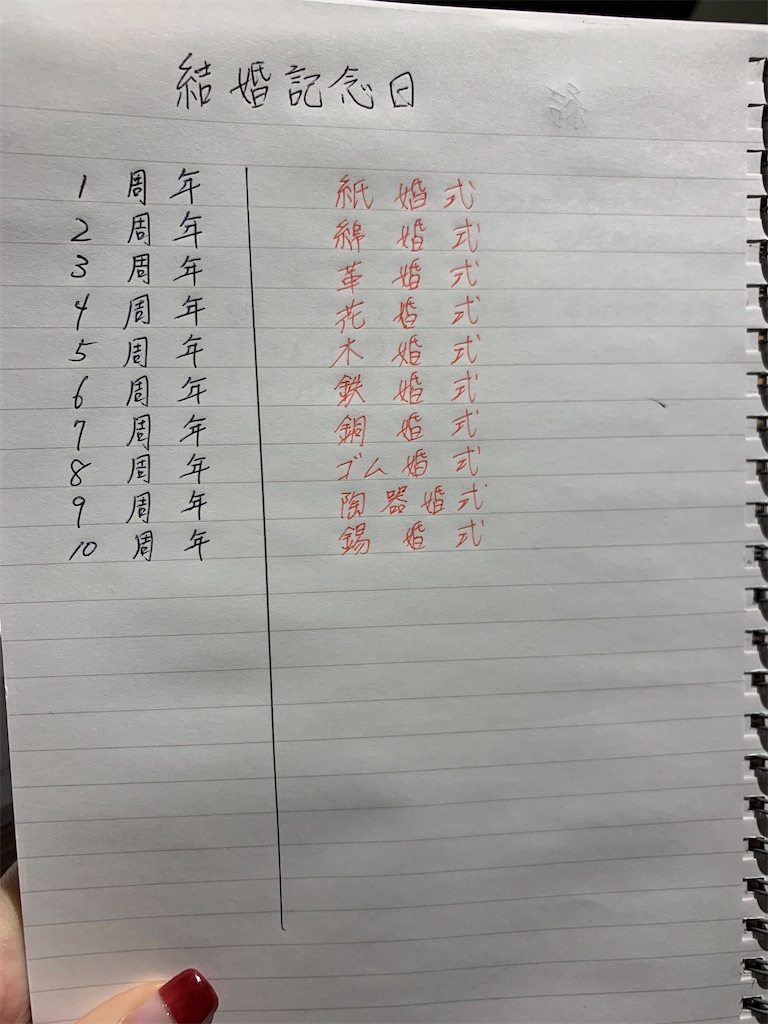 結婚記念日
1周年 紙婚式
2周年 綿婚式
3周年 革婚式
4周年 花婚式
5周年 木婚式
6周年 鉄婚式
7周年 銅婚式
8周年 ゴム婚式
9周年 陶器婚式
10周年 錫婚式